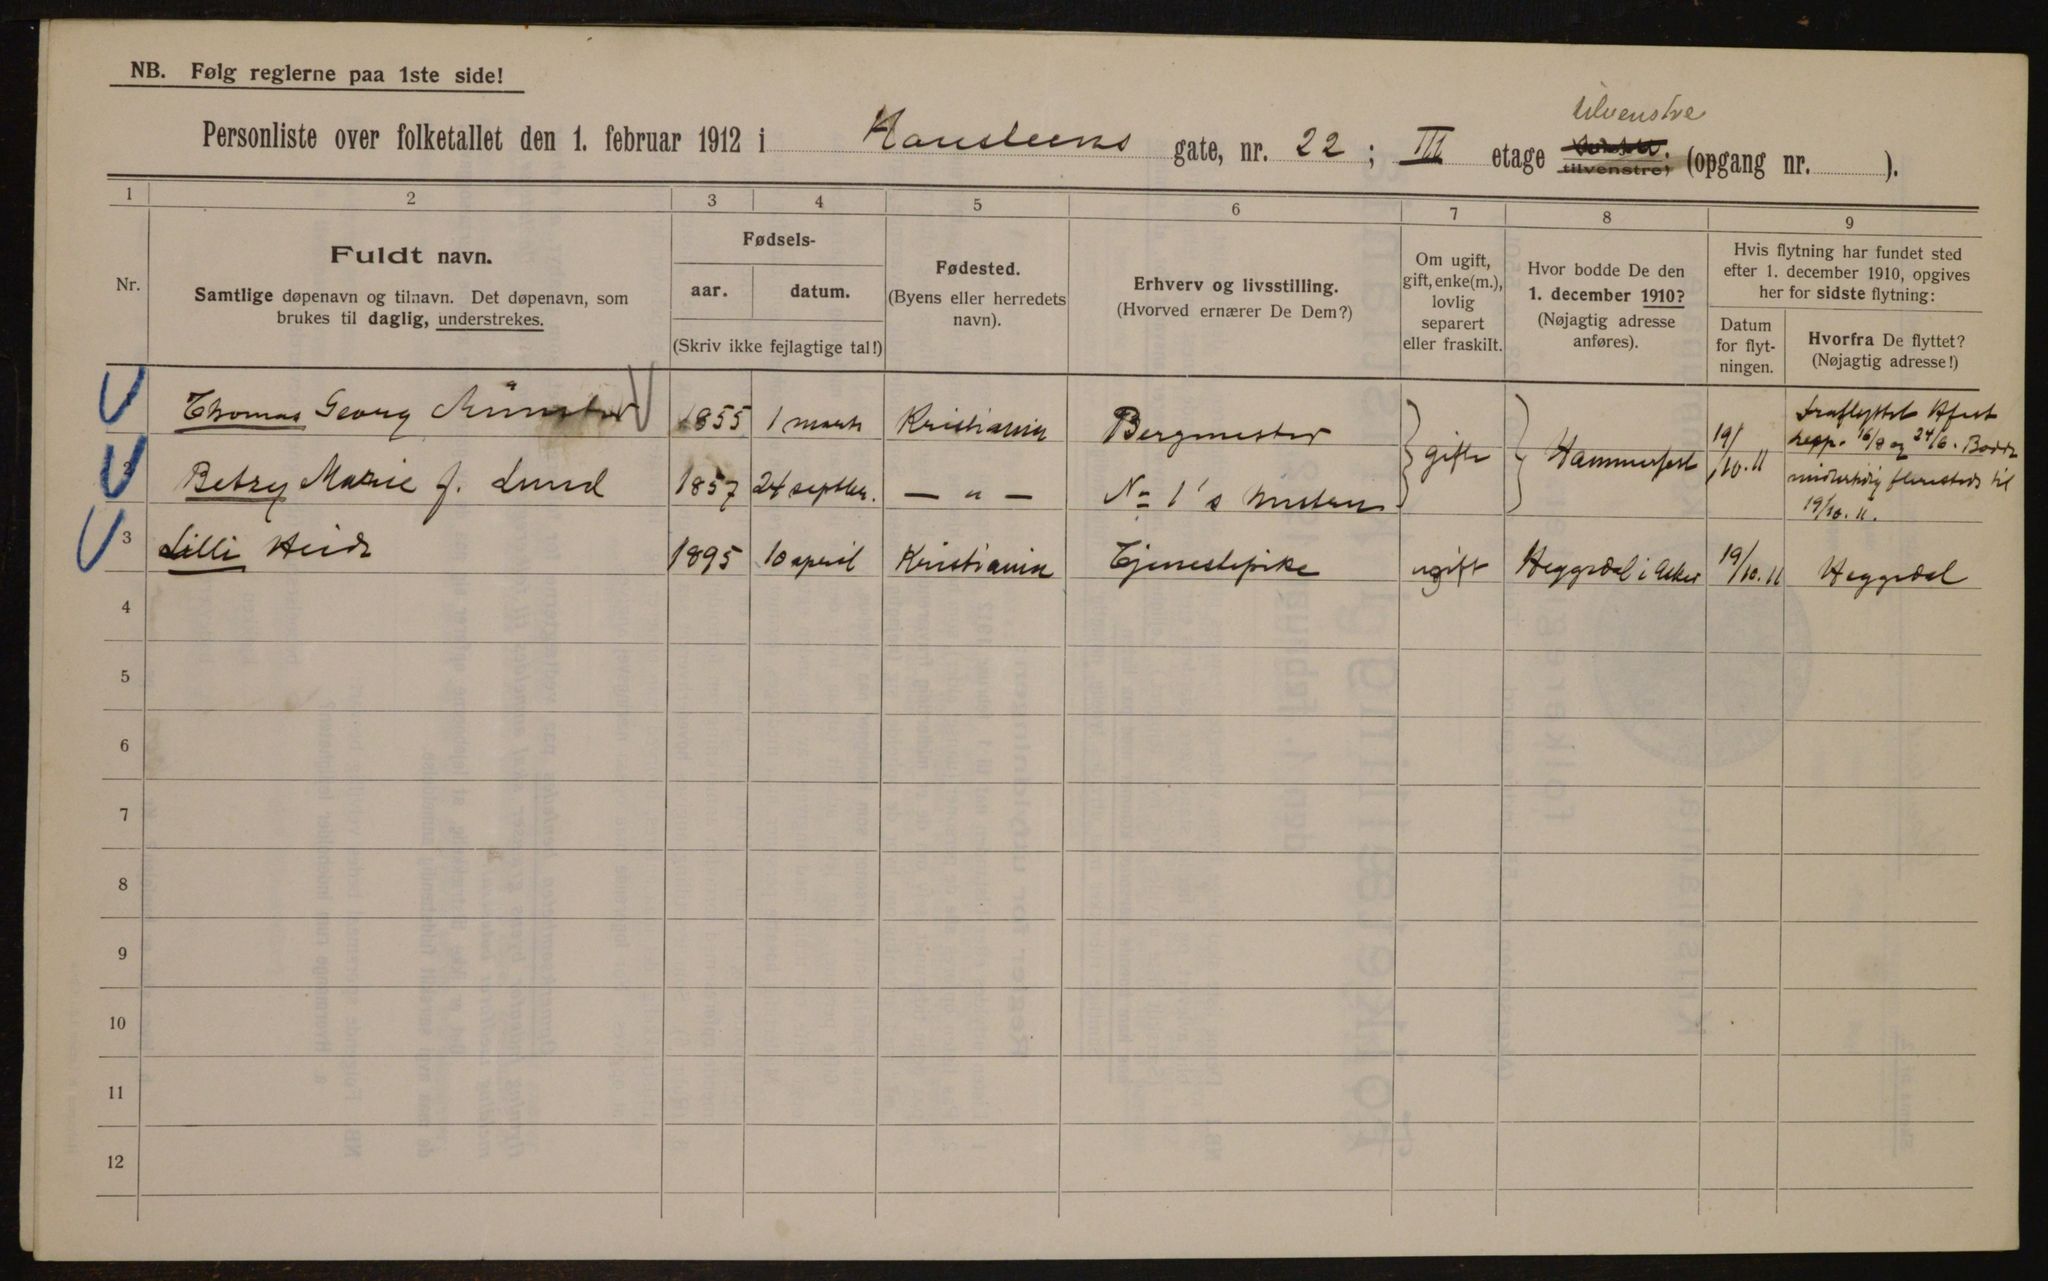 NB. Følg reglerne paa 1ste side!
tilvenstre
Personliste over folketallet den 1. februar 1912 i Hansteens gate, nr. 22 ; III etage tilvenstre; (opgang nr. ).
1 2 3 4 5 6 7 8 9
Nr.
Fuldt navn.
Samtlige døpenavn og tilnavn. Det døpenavn, som
brukes til daglig, understrekes.
Fødsels-
aar. datum.
(Skriv ikke fejlagtige tal!)
Fødested.
(Byens eller herredets
navn).
Erhverv og livsstilling.
(Hvorved ernærer De Dem?)
Om ugift,
gift, enke(m.),
lovlig
separert
eller fraskilt.
Hvor bodde De den
1. december 1910?
(Nøjagtig adresse
anføres).
Hvis flytning har fundet sted
efter 1. december 1910, opgives
her for sidste flytning:
Datum
for flyt-
ningen.
Hvorfra De flyttet?
(Nøjagtig adresse!)
Thomas Georg Münster 1855 1 marts Kristiania Bergmester
2 Betzy Marie f. Lund 1857 24 septbr. — " — No 1's hustru
gift Hammerfest 19/10.11
Fraflyttet Hfest
resp. 16/8 og 24/6. Bodde
midlertidig flersteds til
19/10.11.
3 Lilli Heide 1895 10 april Kristiania Tjenestepike ugift Heggedal i Asker 19/10.11 Heggedal
4
5
6
7
8
9
10
11
12